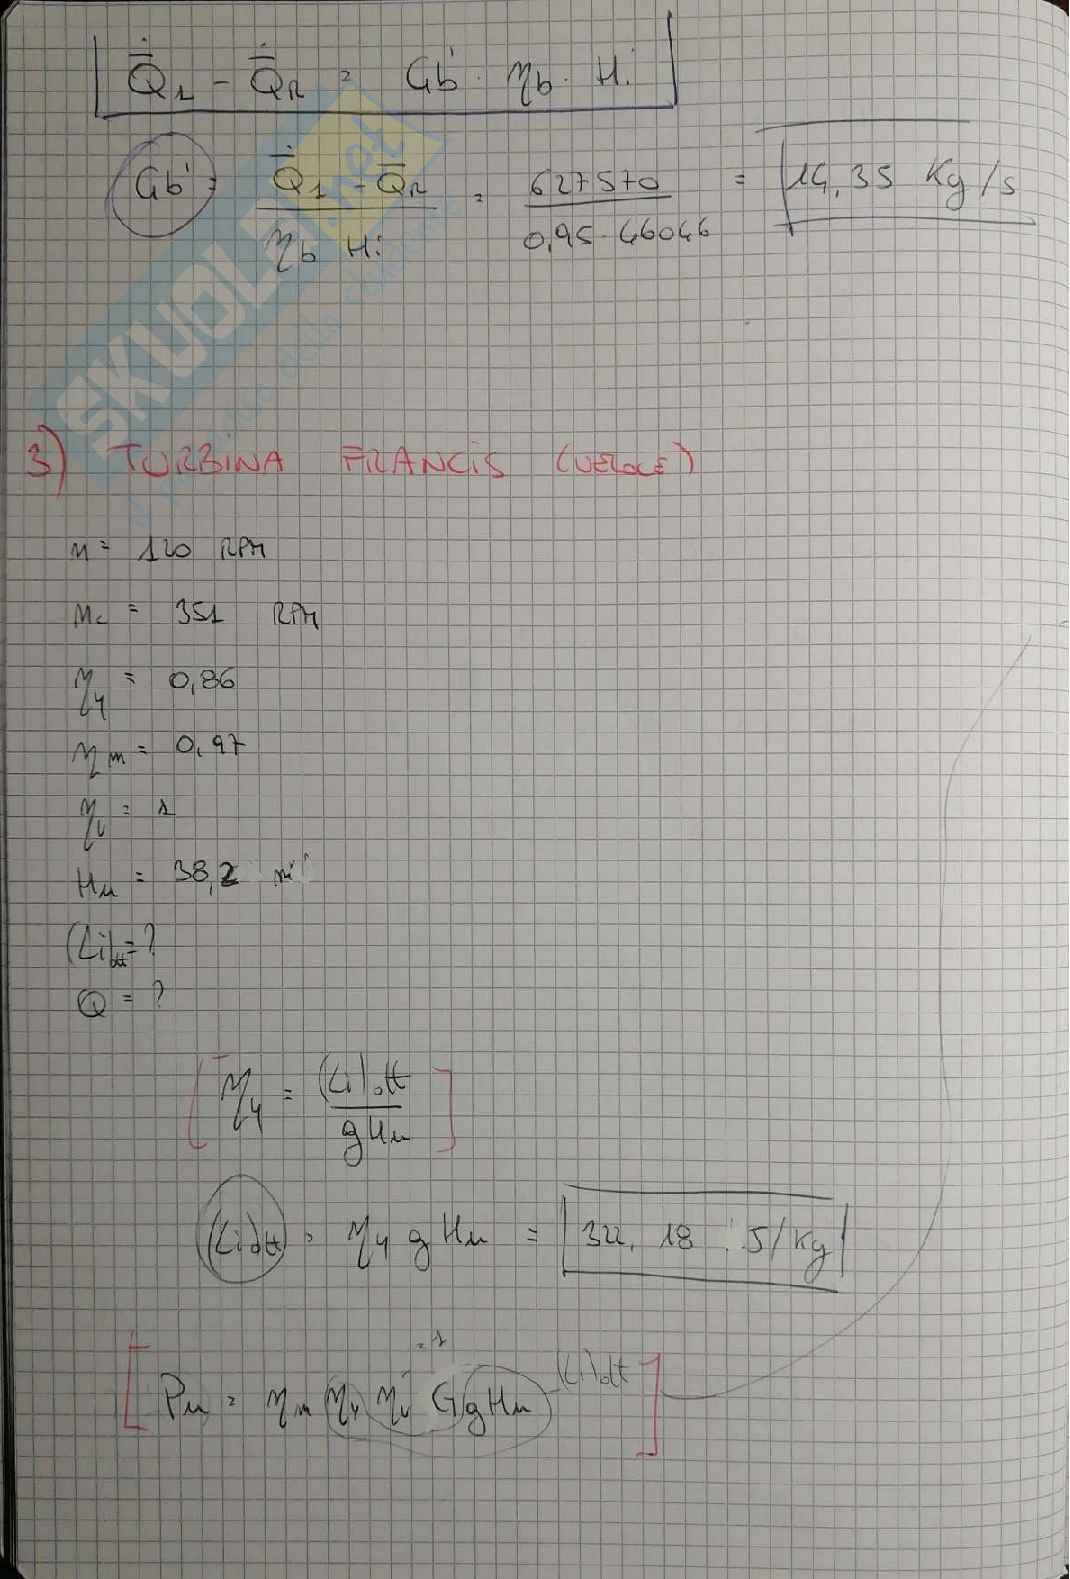 Q̇₁ - Q̇R = Gb' · ηb · Hi
Gb' = Q̇₁ - Q̇R / ηb Hi = 627570 / 0,95 · 46046 = 14,35 Kg/s
SKUOLA.net
3) TURBINA FRANCIS (VELOCE)
n = 120 RPM
nc = 351 RPM
ηy = 0,86
ηm = 0,97
ηv = 1
Hu = 38,2 m
(Li)ott = ?
Q = ?
ηy = (Li)ott / gHu
(Li)ott = ηy g Hu = 322,18 J/Kg
= 1
Pu = ηm ηy ηv G gHu (Li)ott